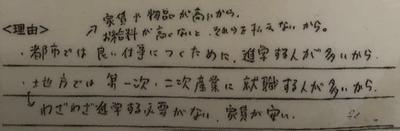 家賃や物品が高いから。
<理由> お給料が高くないと、それらを払えないから。
・都市では良い仕事につくために、進学する人が多いから
・地方では第一次・二次産業に就職する人が多いから。
わざわざ進学する必要がない、家賃が安い。